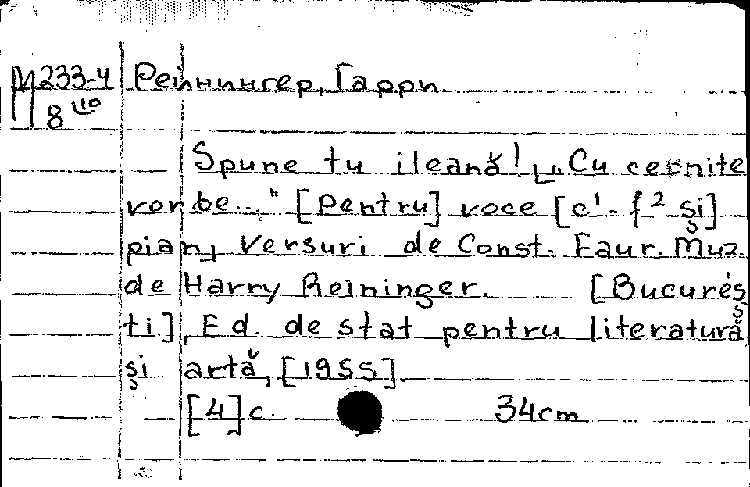 М 233-4 Рейнингер, Гарри
8
Spune tu ileană! „Cu cernite
vorbe..." [Pentru] voce [c¹-f² și]
pian, versuri de Const. Faur. Muz.
de Harry Reininger. [Bucureș
ti], Ed. de stat pentru literatură
și artă, [1955]
[4] c. 34cm